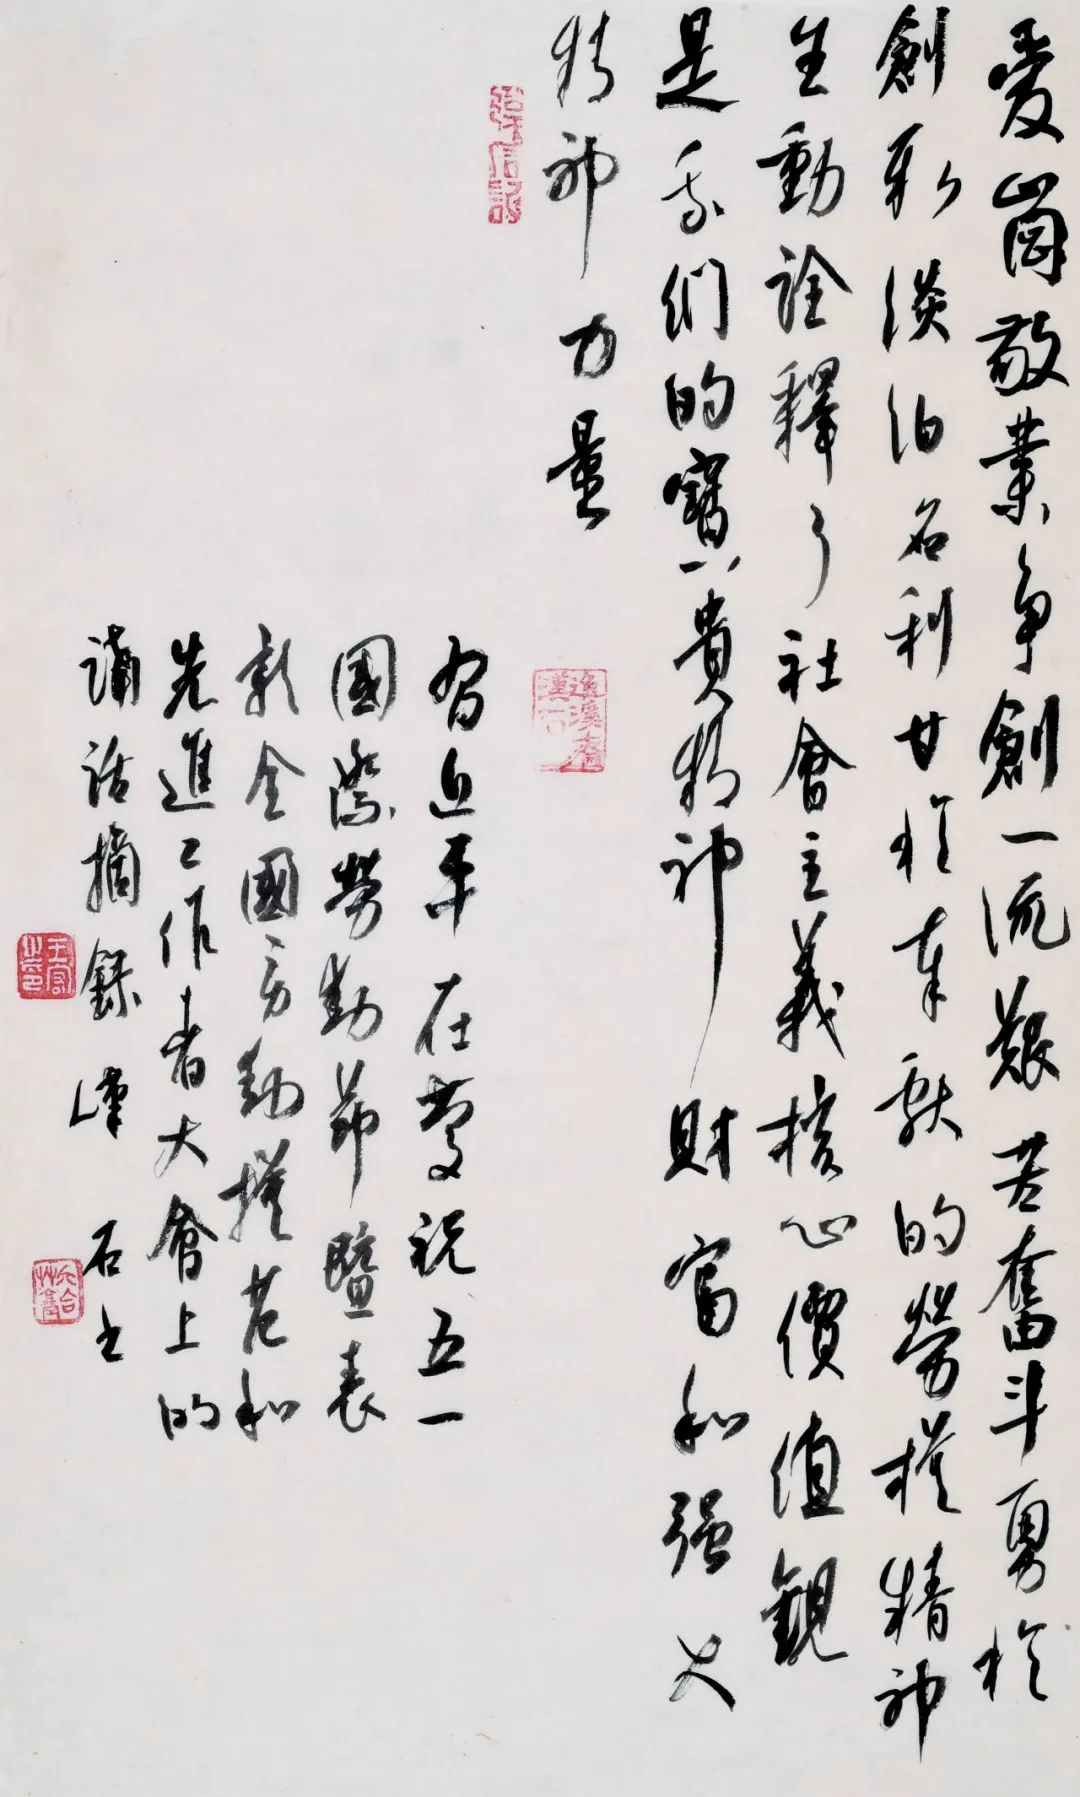 愛崗敬業争創一流艱苦奮斗勇於
創新淡泊名利甘於奉獻的勞模精神
生動詮釋了社會主義核心價值觀
是我們的寶貴精神財富和强大
精神力量
習近平在慶祝五一
國際勞動節暨表
彰全國勞動模范和
先進工作者大會上的
講話摘錄 漢石书